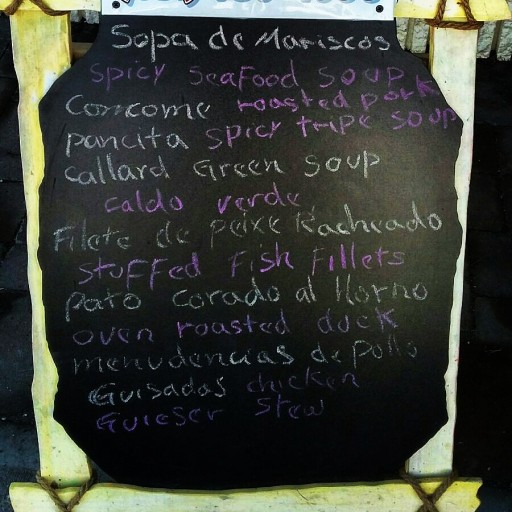 Sopa de Mariscos
Spicy Seafood soup
Comcome roasted pork
pancita spicy tripe soup
callard Green soup
caldo verde
Filete de peixe Racheado
stuffed Fish Fillets
Pato corado al Horno
oven roasted duck
menudencias de pollo
Guisadas chicken
Guieser Stew